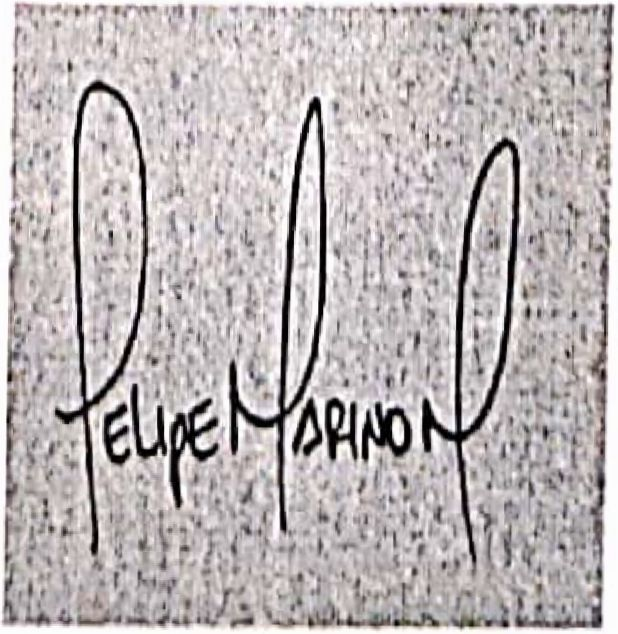 Felipe Marino M